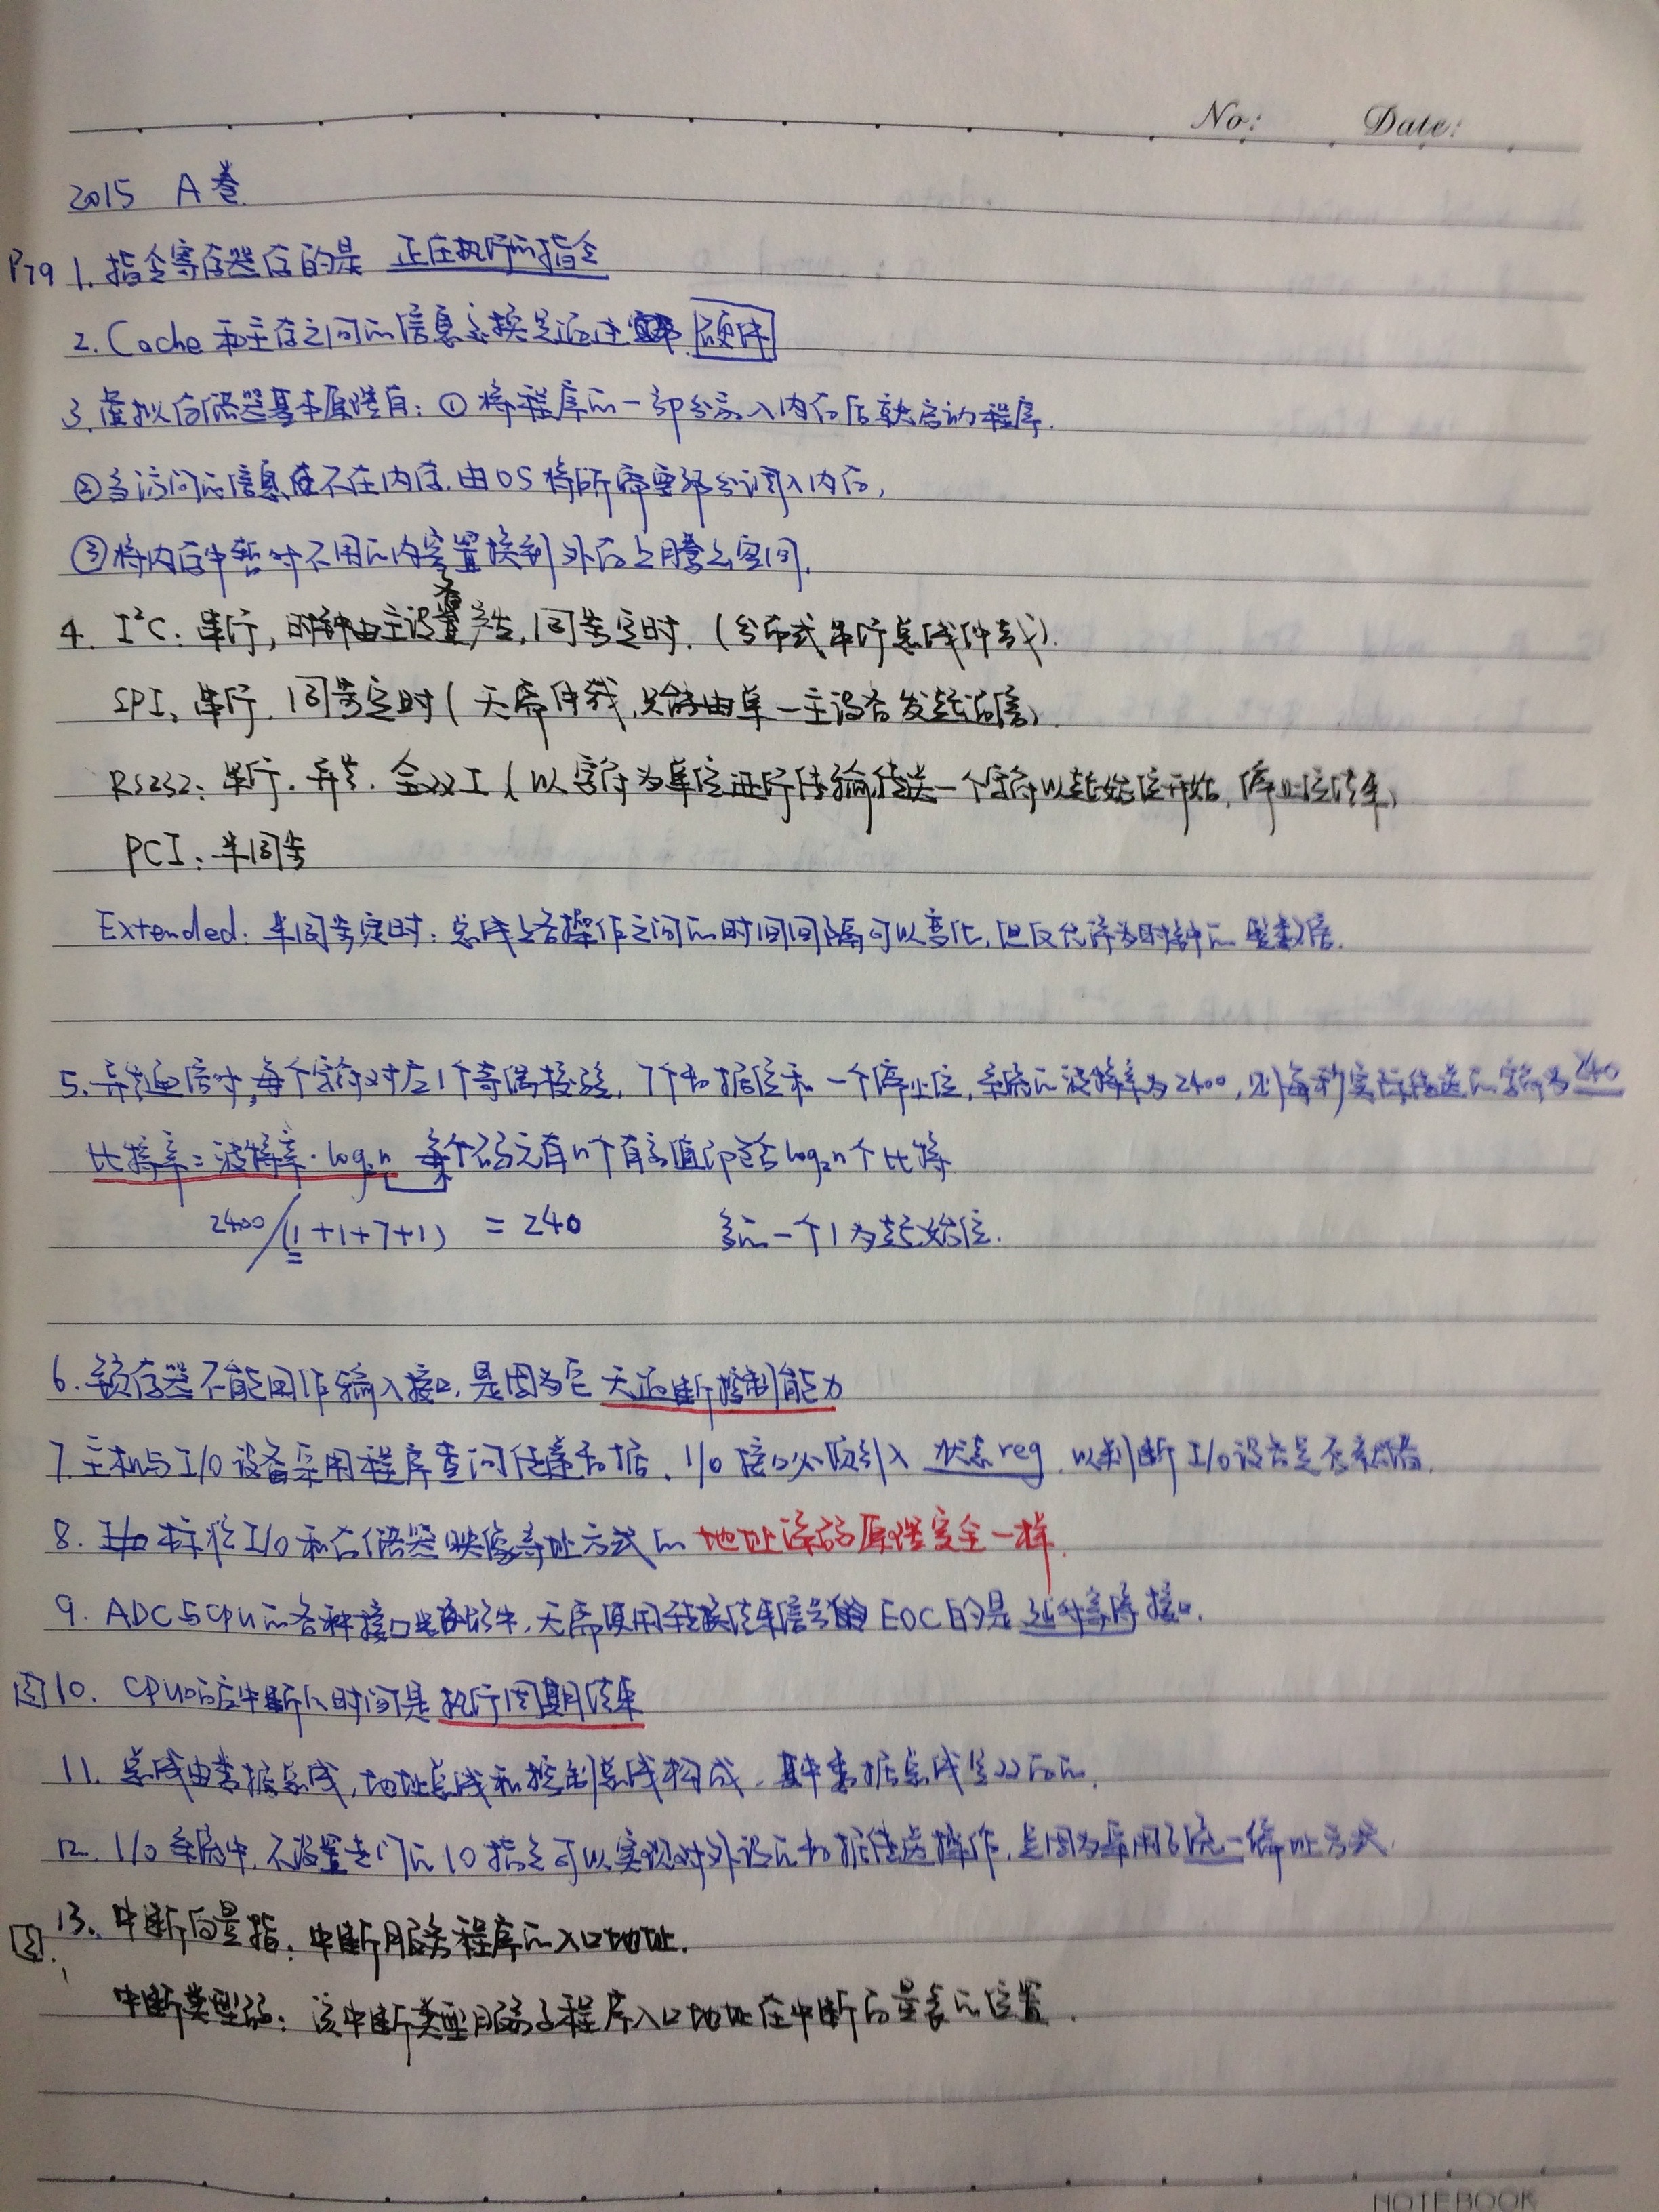 No: Date:
2015 A卷
P79 1. 指令寄存器存的是 正在执行的指令
2. Cache 和主存之间的信息交换是通过 硬件
3. 虚拟存储器基本原理有: ① 将程序的一部分装入内存后就启动程序.
② 当访问的信息不在内存, 由OS将所需要部分调入内存,
③ 将内存中暂时不用的内容置换到外存上腾出空间.
4. I²C: 串行, 时钟由主设备产生, 同步定时. (分布式串行总线仲裁).
SPI: 串行. 同步定时 (无需仲裁, 只能由单一主设备发起通信).
RS232: 串行. 异步. 全双工 (以字符为单位进行传输, 传送一个字符以起始位开始, 停止位结束)
PCI: 半同步
Extended: 半同步定时: 总线上各操作之间的时间间隔可以变化, 但仅允许为时钟的整数倍.
5. 异步通信时, 每个字符对应1个奇偶校验, 7个数据位和一个停止位, 系统的波特率为2400, 则每秒实际传送的字符为 240
比特率 = 波特率 · log₂n 每个码元有n个有效值即包含log₂n个比特
2400/(1+1+7+1) = 240 多的一个1为起始位.
6. 锁存器不能用作输入接口, 是因为它 无通断控制能力
7. 主机与I/O设备采用程序查询传送数据, I/O接口必须引入 状态reg, 以判断I/O设备是否就绪.
8. 标准I/O和存储器映像寻址方式的 地址译码原理完全一样.
9. ADC与CPU的各种接口电路中, 无需使用转换结束信号 EOC的是 延时等待接口.
10. CPU响应中断的时间是 执行周期结束
11. 总线由数据总线, 地址总线和控制总线构成, 其中数据总线是双向的.
12. I/O系统中, 不设置专门的IO指令可以实现对外设的数据传送操作, 是因为采用了统一编址方式.
13. 中断向量指: 中断服务程序的入口地址.
中断类型码: 该中断类型服务子程序入口地址在中断向量表的位置.
NOTEBOOK